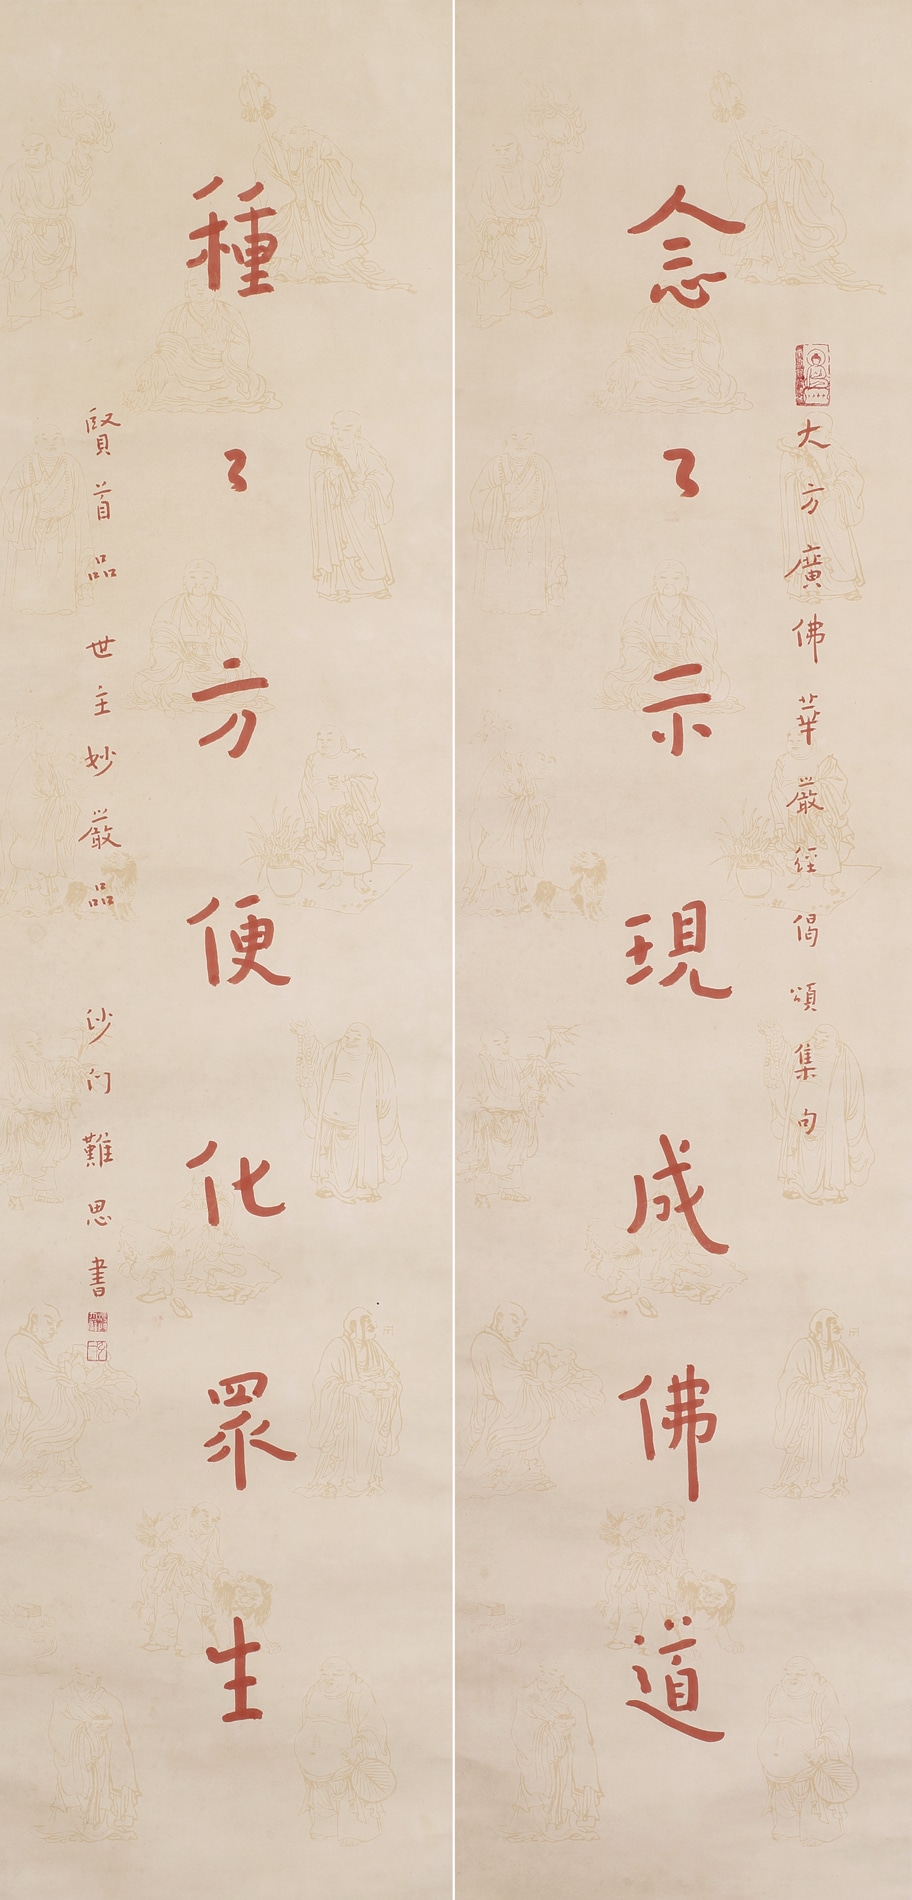 大方廣佛華嚴經偈頌集句
念〻示現成佛道
種〻方便化眾生
賢首品 世主妙嚴品 沙门難思書